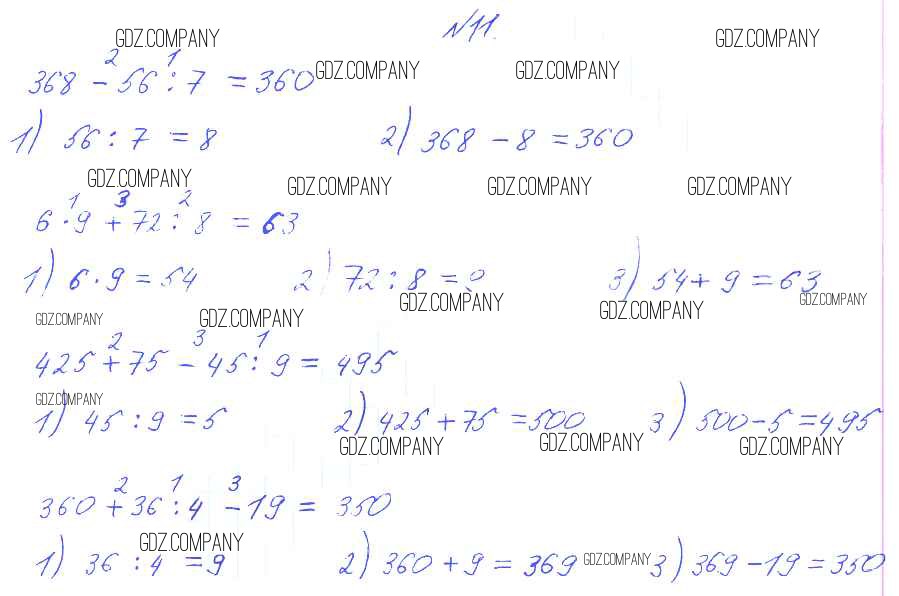 №11.
GDZ.COMPANY GDZ.COMPANY
2 1
368 - 56 : 7 = 360 GDZ.COMPANY GDZ.COMPANY
1) 56 : 7 = 8 2) 368 - 8 = 360
GDZ.COMPANY GDZ.COMPANY GDZ.COMPANY GDZ.COMPANY
1 3 2
6 · 9 + 72 : 8 = 63
1) 6 · 9 = 54 2) 72 : 8 = 9 3) 54 + 9 = 63
GDZ.COMPANY GDZ.COMPANY GDZ.COMPANY GDZ.COMPANY GDZ.COMPANY
2 3 1
425 + 75 - 45 : 9 = 495
GDZ.COMPANY
1) 45 : 9 = 5 2) 425 + 75 = 500 3) 500 - 5 = 495
GDZ.COMPANY GDZ.COMPANY GDZ.COMPANY
2 1 3
360 + 36 : 4 - 19 = 350
GDZ.COMPANY
1) 36 : 4 = 9 2) 360 + 9 = 369 GDZ.COMPANY 3) 369 - 19 = 350